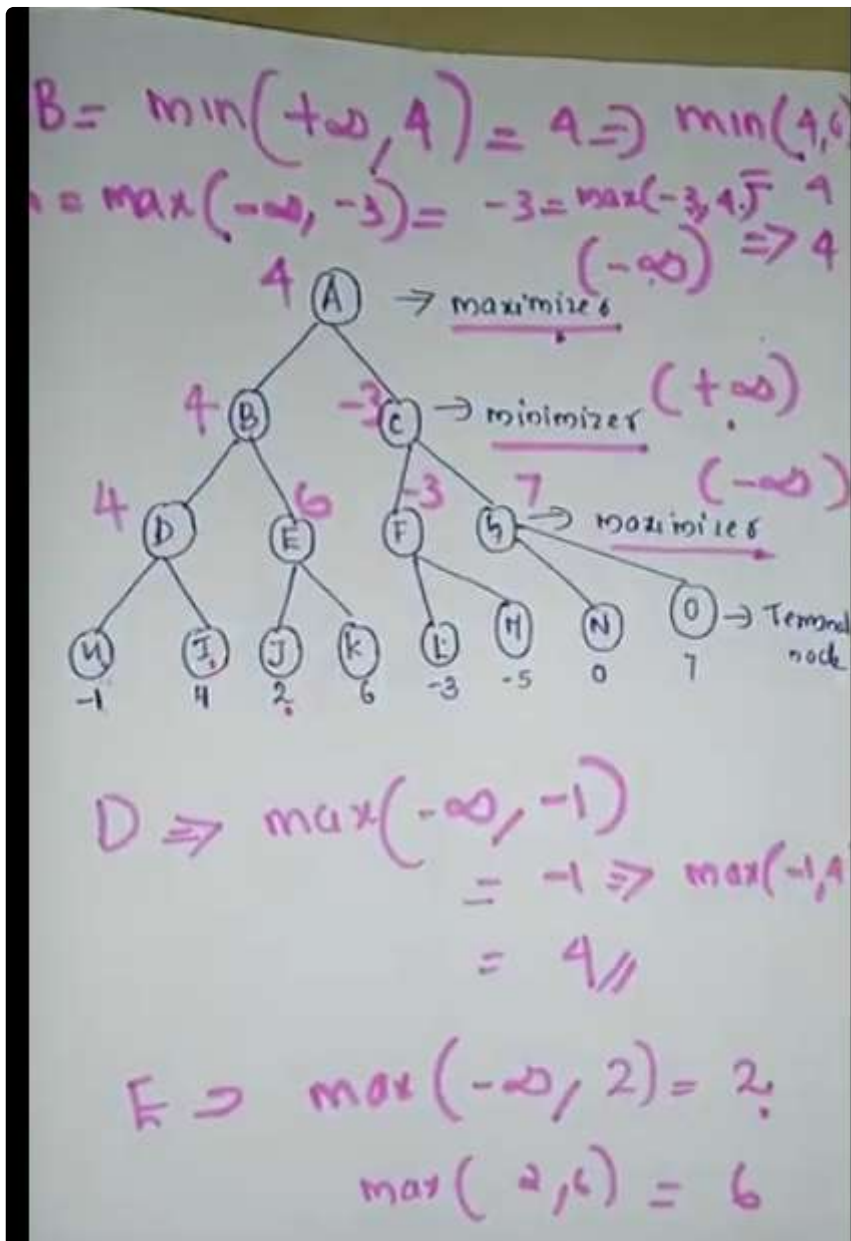 B = min(+∞, 4) = 4 => min(4,6)
= max(-∞, -3) = -3 = max(-3, 4) 4
(-∞) => 4
4 A → maximizer
4 B -3 C → minimizer (+∞)
(-∞)
4 D 6 E -3 F 7 G → maximizer
H I J K L M N O → Terminal node
-1 4 2 6 -3 -5 0 7
D => max(-∞, -1)
= -1 => max(-1,4
= 4//
E => max(-∞, 2) = 2
max(2,6) = 6